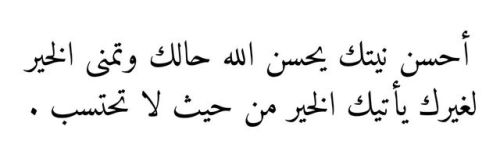 أحسن نيتك يحسن الله حالك وتمنى الخير
لغيرك يأتيك الخير من حيث لا تحتسب .